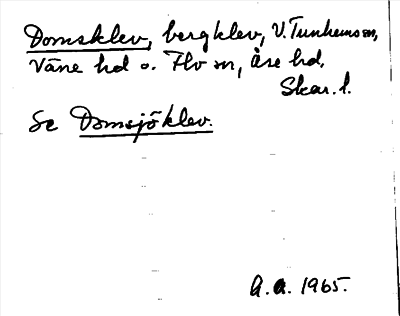 Domsklev, bergklev, V. Tunhems sn,
Väne hd o. Flo sn, Åse hd,
Skar. l.
Se Domsjöklev.
A. a. 1965.